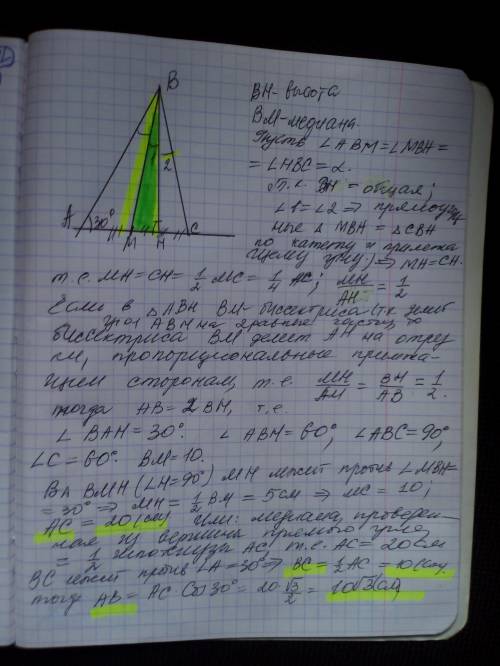 B
BH - высота
BM - медиана.
Пусть ∠ABM = ∠MBH =
= ∠HBC = α.
Т.к. BH = общая;
1 2
∠1 = ∠2 ⇒ прямоуголь
ные △MBH = △CBH
по катету и прилежа
щему углу) ⇒ MH = CH.
A 30° M H C
т.е. MH = CH = 1/2 MC = 1/4 AC; MH/AH = 1/2
Если в △ABH BM - биссектриса (т.к. делит
угол ABH на 2 равные части, то
биссектриса BM делит AH на отрез
ки, пропорциональные прилежа-
щим сторонам, т.е. MH/AM = BH/AB = 1/2.
тогда AB = 2BH, т.е.
∠BAH = 30°. ∠ABH = 60°, ∠ABC = 90°,
∠C = 60°. BM = 10.
В △ BMH (∠H = 90°) MH лежит против ∠MBH =
= 30° ⇒ MH = 1/2 BM = 5 см ⇒ MC = 10;
AC = 20 (см) Или: медиана, проведен-
ная из вершины прямого угла,
= 1/2 гипотенузы AC, т.е. AC = 20 см
BC лежит против ∠A = 30° ⇒ BC = 1/2 AC = 10 (см),
тогда AB = AC · Cos 30° = 20 · √3/2 = 10√3 (см)